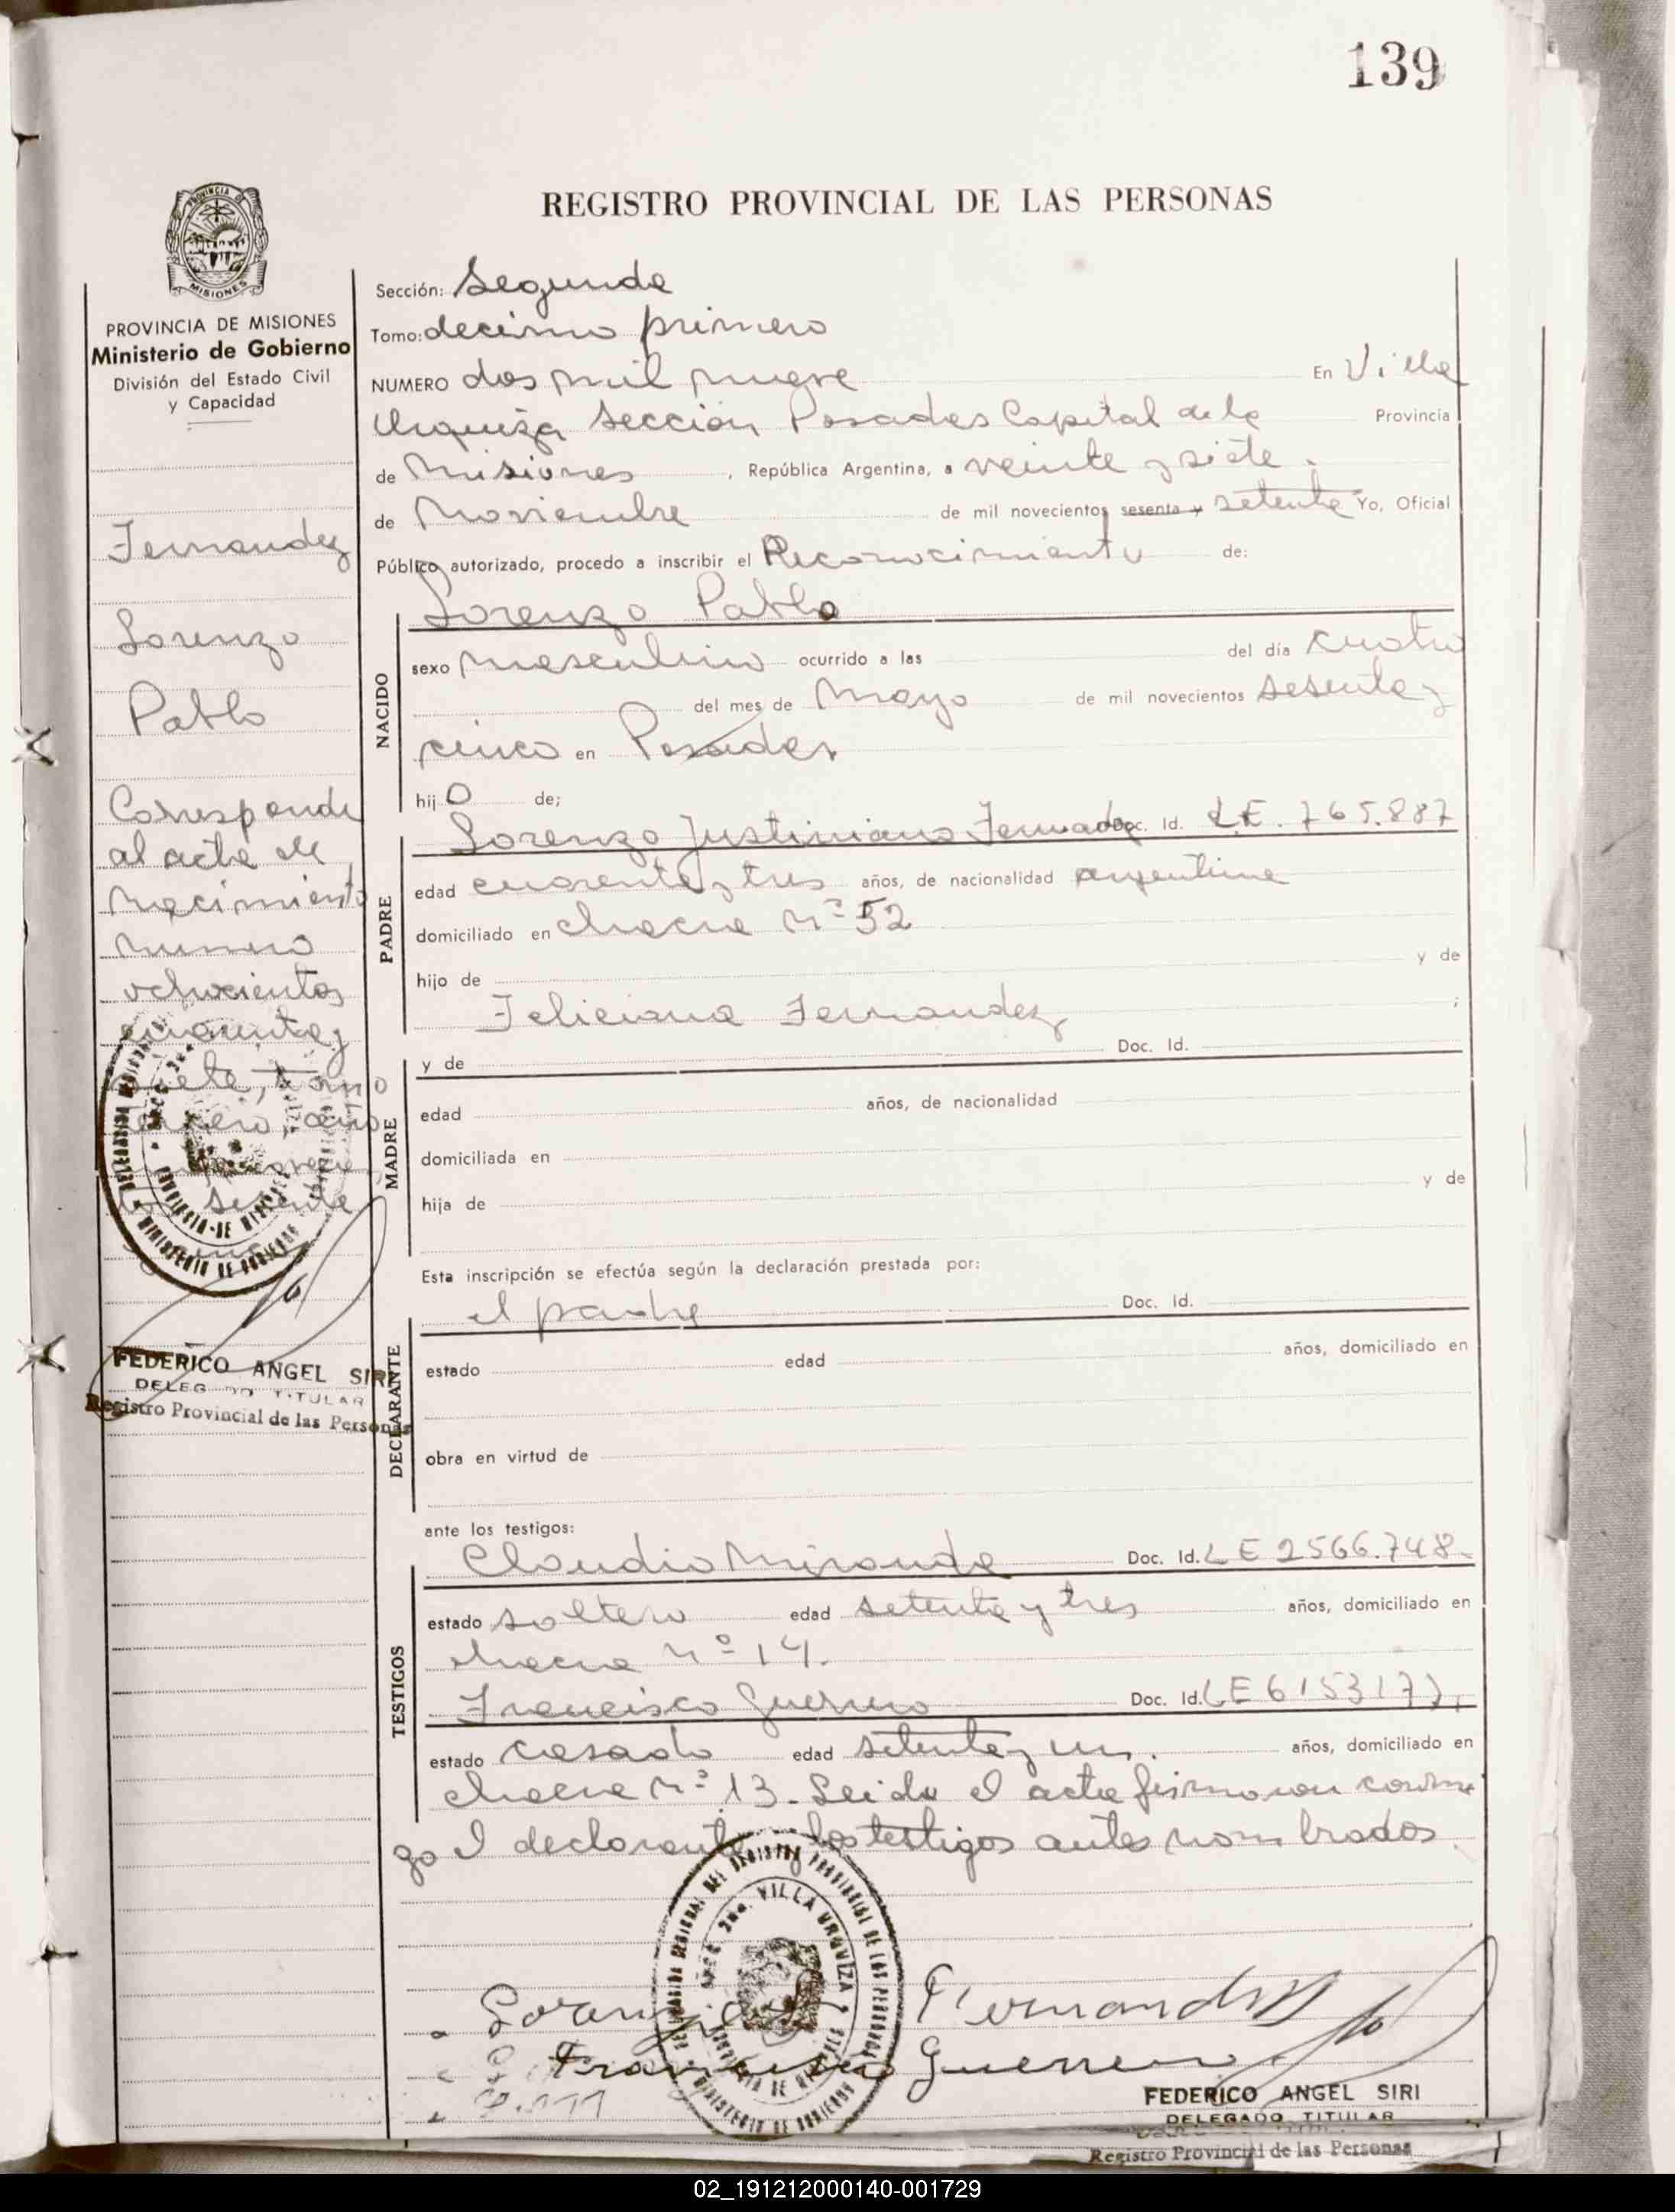 139
REGISTRO PROVINCIAL DE LAS PERSONAS
PROVINCIA DE MISIONES
Ministerio de Gobierno
División del Estado Civil
y Capacidad
Fernandez
Lorenzo
Pablo
Corresponde
al acta de
nacimiento
numero
ochocientos
cuarenta y
siete, tomo
tercero, año
sesenta
FEDERICO ANGEL SIRI
DELEGADO TITULAR
Registro Provincial de las Personas
Sección: Segunda
Tomo: decimo primero
NUMERO dos mil nueve En Villa
Urquiza Sección Posadas Capital de la Provincia
de Misiones, República Argentina, a veinte y siete.
de Noviembre de mil novecientos sesenta y setenta Yo, Oficial
Público autorizado, procedo a inscribir el Reconocimiento de:
Lorenzo Pablo
NACIDO
sexo masculino ocurrido a las del día cuatro
del mes de Mayo de mil novecientos sesenta y
cinco en Posadas
hijo de;
PADRE
Lorenzo Justiniano Fernadez Doc. Id. L.E. 765.887
edad cuarenta y tres años, de nacionalidad argentina
domiciliado en chacra nº 52
hijo de y de
Feliciana Fernandez ;
MADRE
y de Doc. Id.
edad años, de nacionalidad
domiciliada en
hija de y de
Esta inscripción se efectúa según la declaración prestada por:
DECLARANTE
el padre Doc. Id.
estado edad años, domiciliado en
obra en virtud de
ante los testigos:
TESTIGOS
Claudio Miranda Doc. Id. LE 2566.748.
estado soltero edad setenta y tres años, domiciliado en
chacra nº 14.
Francisco Guerrero Doc. Id. LE
estado casado edad setenta y un. años, domiciliado en
chacra nº 13. Leida el acta firmaron conmi
go el declarante y los testigos antes nombrados
SECC. 2da. VILLA URQUIZA
PROVINCIA DE MISIONES
MINISTERIO DE GOBIERNO
Lorenzo Fernandez
Francisco Guerrero
FEDERICO ANGEL SIRI
DELEGADO TITULAR
Registro Provincial de las Personas
02_191212000140-001729